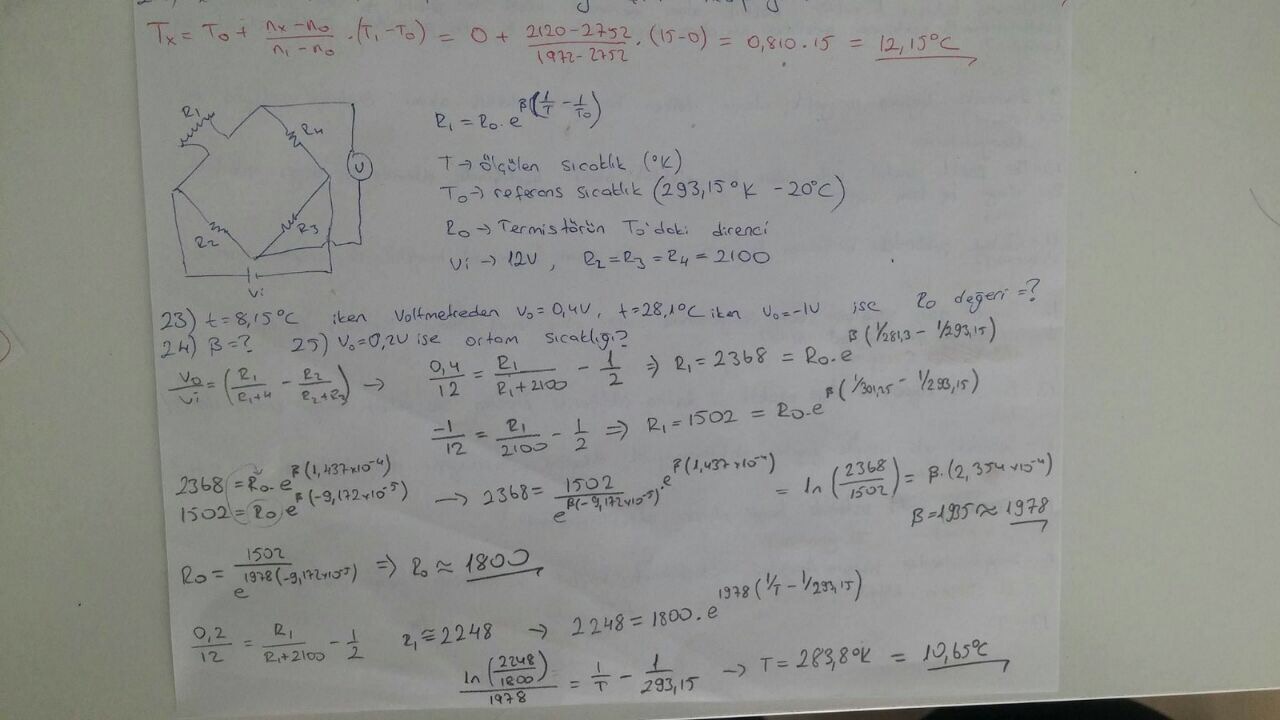 Tx = T0 + (nx-n0)/(n1-n0) . (T1-T0) = 0 + (2120-2752)/(1972-2752) . (15-0) = 0,810 . 15 = 12,15°C
R1
R4
V
R2
R3
Vi
R1 = R0 . e^β(1/T - 1/T0)
T → ölçülen sıcaklık (°K)
T0 → referans sıcaklık (293,15°K - 20°C)
R0 → Termistörün T0'daki direnci
Vi → 12V , R2=R3=R4=2100
23) t=8,15°C iken Voltmetreden V0=0,4V, t=28,1°C iken V0=-1V ise R0 değeri=?
24) β=? 25) V0=0,2V ise ortam sıcaklığı?
V0/Vi = (R1/(R1+4) - R2/(R2+R3)) → 0,4/12 = R1/(R1+2100) - 1/2 ⇒ R1 = 2368 = R0 . e^β(1/281,3 - 1/293,15)
-1/12 = R1/2100 - 1/2 ⇒ R1 = 1502 = R0 . e^β(1/301,25 - 1/293,15)
2368 = R0 . e^β(1,437x10^-4)
1502 = R0 . e^β(-9,172x10^-5) → 2368 = 1502/e^β(-9,172x10^-5) . e^β(1,437x10^-4) = ln(2368/1502) = β.(2,354x10^-4)
β=1935≈1978
R0 = 1502/e^1978(-9,172x10^-5) ⇒ R0 ≈ 1800
0,2/12 = R1/(R1+2100) - 1/2 r1≅2248 → 2248 = 1800 . e^1978(1/T - 1/293,15)
ln(2248/1800)/1978 = 1/T - 1/293,15 → T = 283,8°K = 10,65°C